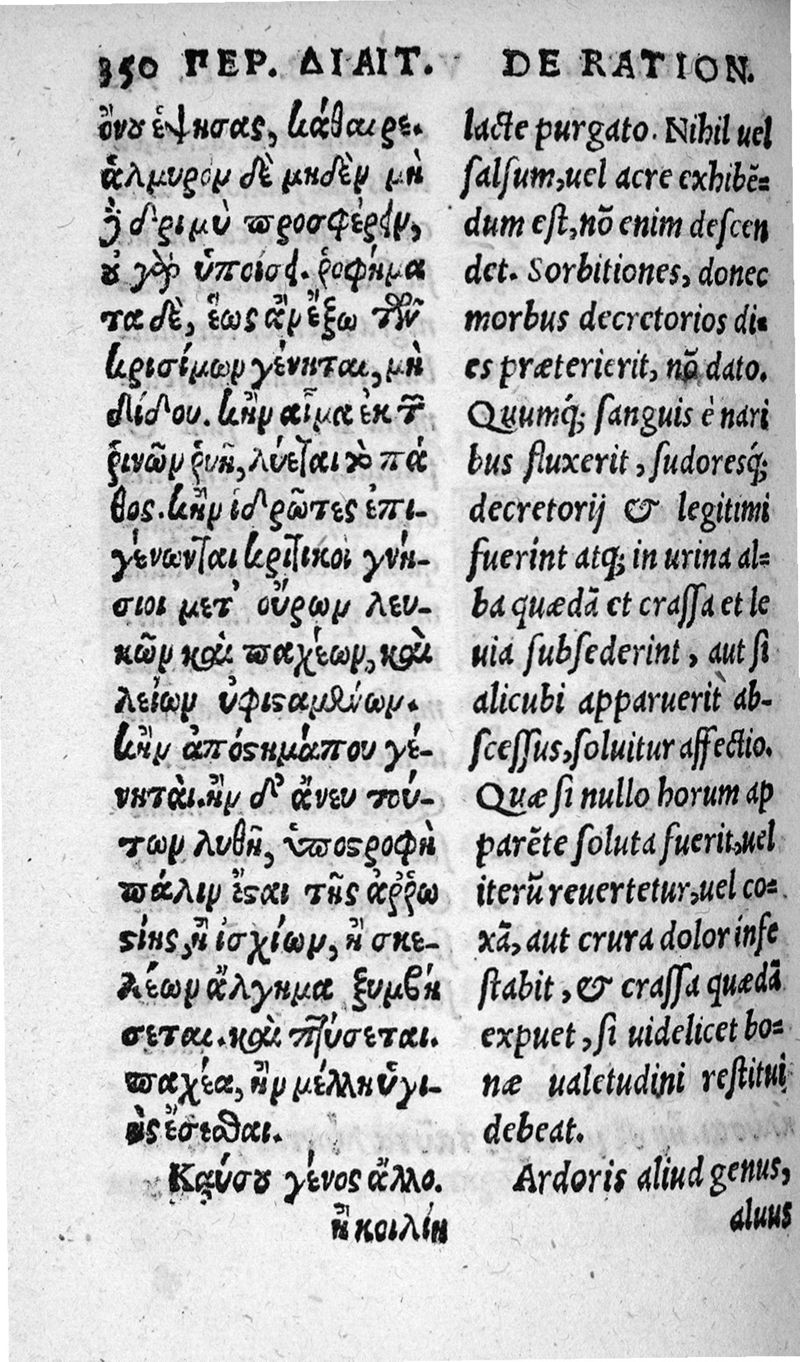 350 ΠΕΡ. ΔΙΑΙΤ.
ὄνου ἑψήσας, κάθαιρε.
ἁλμυρὸν δὲ μηδὲν μὴ
δριμὺ προσφέρειν,
οὐ γὰρ ὑποίσει. ῥοφήμα
τα δὲ, ἕως ἂν ἔξω τῶν
κρισίμων γένηται, μὴ
δίδου. κἢν αἷμα ἐκ τ
ῥινῶν ῥυῇ, λύεται τὸ πά
θος. κἢν ἱδρῶτες ἐπι-
γένωνται κριτικοὶ γνή-
σιοι μετ' οὔρων λευ-
κῶν καὶ παχέων, καὶ
λείων ὑφισαμένων.
κἢν ἀπόστημάπου γέ-
νηται. ἢν δ' ἄνευ τού-
των λυθῇ, ὑποστροφὴ
πάλιν ἔσται τῆς ἀῤῥω
στίης, ἢ ἰσχίων, ἢ σκε-
λέων ἄλγημα ξυμβή
σεται. καὶ πτύσεται.
παχέα, ἢν μέλλῃ ὑγι-
ὴς ἔσεσθαι.
Καύσου γένος ἄλλο.
ἢ κοιλίη
DE RATION.
lacte purgato. Nihil uel
salsum, uel acre exhibē=
dum est, nō enim descen
det. Sorbitiones, donec
morbus decretorios di=
es præterierit, nō dato.
Quumq́; sanguis è nari
bus fluxerit, sudoresq́;
decretorij & legitimi
fuerint atq; in urina al=
ba quædā et crassa et le
uia subsederint, aut si
alicubi apparuerit ab-
scessus, soluitur affectio.
Quæ si nullo horum ap
parēte soluta fuerit, uel
iterū reuertetur, uel co=
xā, aut crura dolor infe
stabit, & crassa quædā
expuet, si uidelicet bo=
næ ualetudini restitui
debeat.
Ardoris aliud genus,
aluus